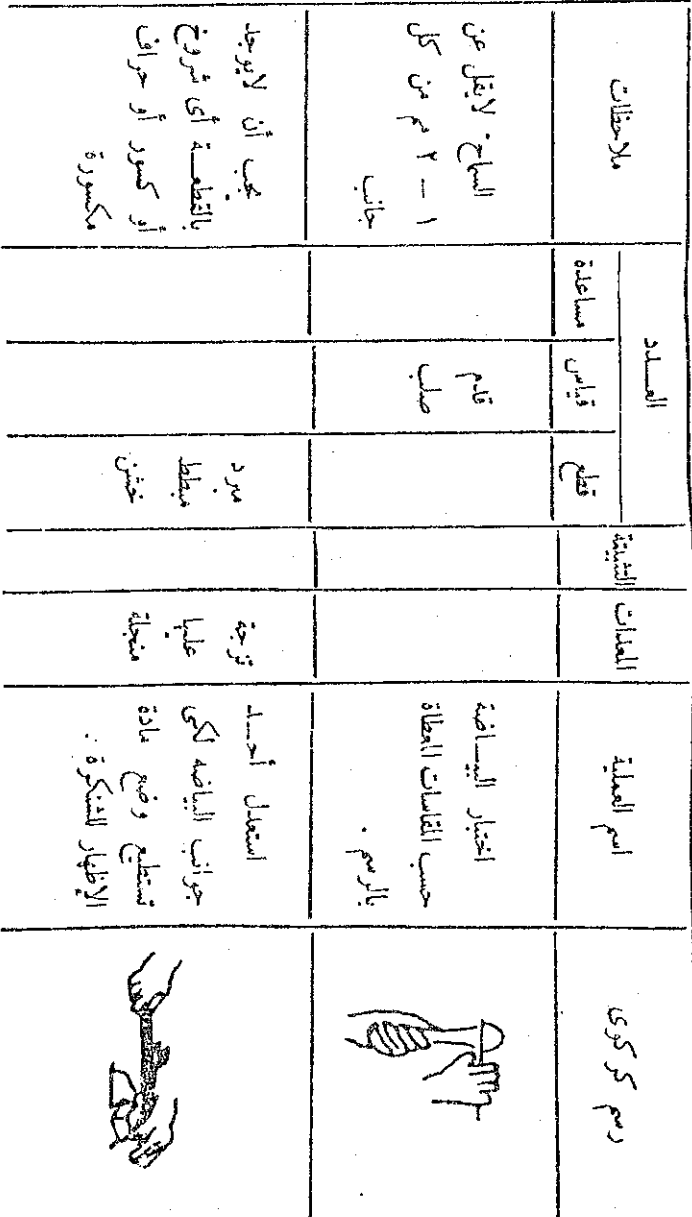 رسم كروكى
اسم العملية
المعدات
التثبيتة
العـــدد
قطع
قياس
مساعدة
ملاحظات
اختبار البيــاضة
حسب المقاسات المعطاة
بالرسم .
قدم
صلب
السماح لايقل عن
١ — ٢ مم من كل
جانب
استعدل أحــد
جوانب البياضه لكى
تستطيع وضع مادة
الإظهار للشنكرة .
تزجة
عليها
منجلة
مبرد
مبطط
خشن
يجب أن لايوجد
بالقطعــة أى شروخ
أو كسور أو حراف
مكسورة